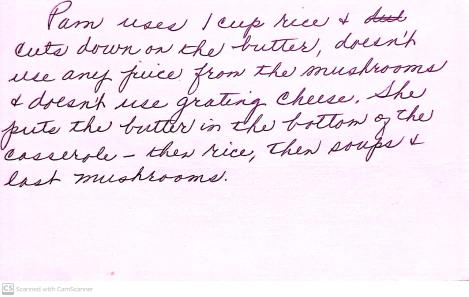 Pam uses 1 cup rice &
cuts down on the butter, doesn't
use any juice from the mushrooms
& doesn't use grating cheese. She
puts the butter in the bottom of the
casserole – then rice, then soups &
last mushrooms.
CS Scanned with CamScanner